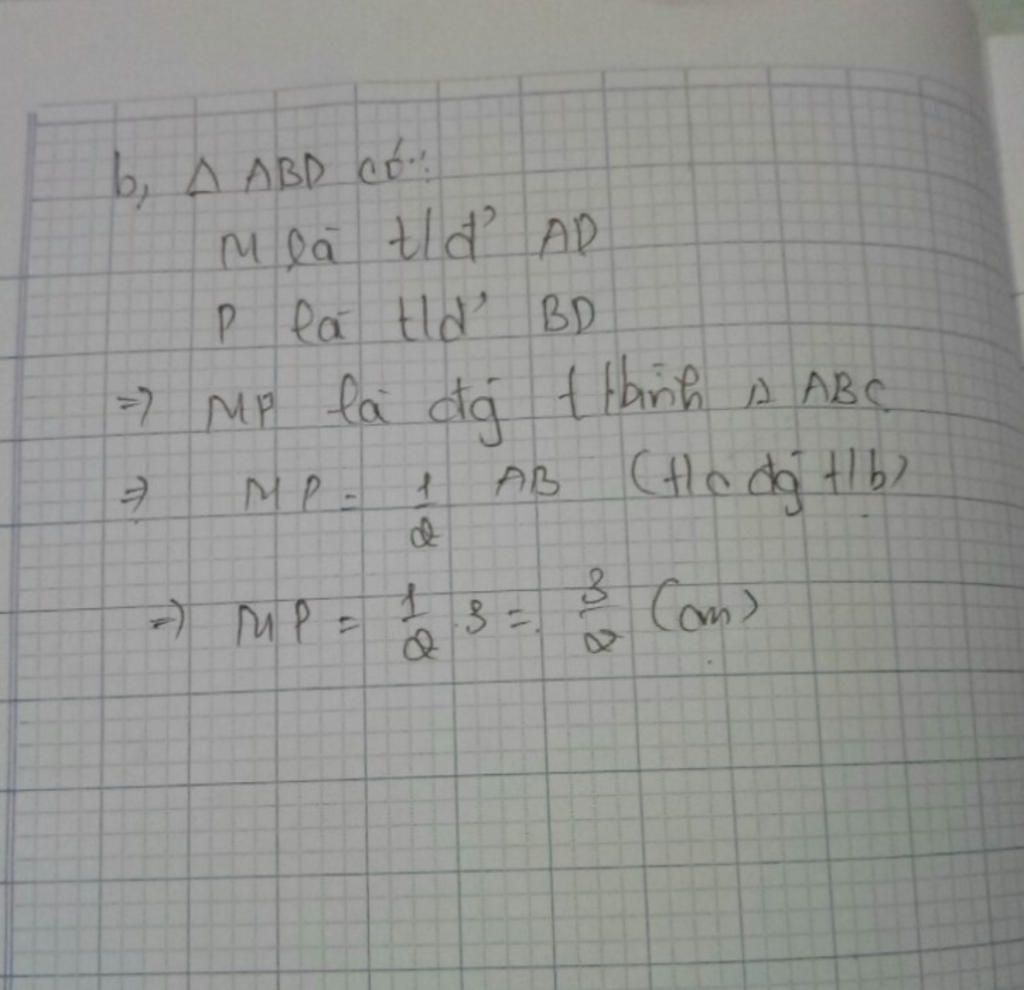 b, Δ ABD có:
M là t/đ' AD
P là t/đ' BD
=> MP là đg t Δ ABC
=> MP = 1/2 AB (t/c đg t/b)
=> MP = 1/2 . 3 = 3/2 (cm)